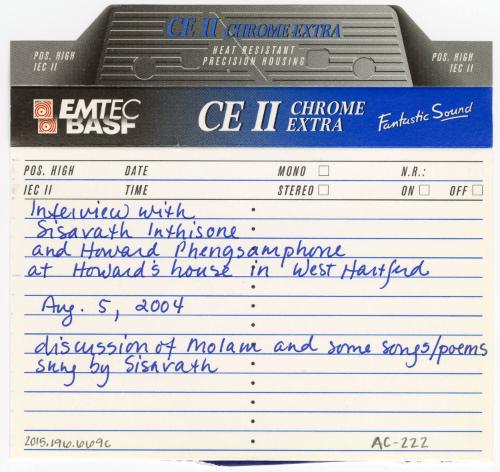 CE II CHROME EXTRA
HEAT RESISTANT
PRECISION HOUSING
POS. HIGH
IEC II
POS. HIGH
IEC II
EMTEC
BASF
CE II CHROME
EXTRA
Fantastic Sound
POS. HIGH DATE MONO N.R.:
IEC II TIME STEREO ON OFF
Interview with
Sisavath Inthisone
and Howard Phengsamphone
at Howard's house in West Hartford
Aug. 5, 2004
discussion of Molam and some songs/poems
sung by Sisavath
2015.196.669c AC-222